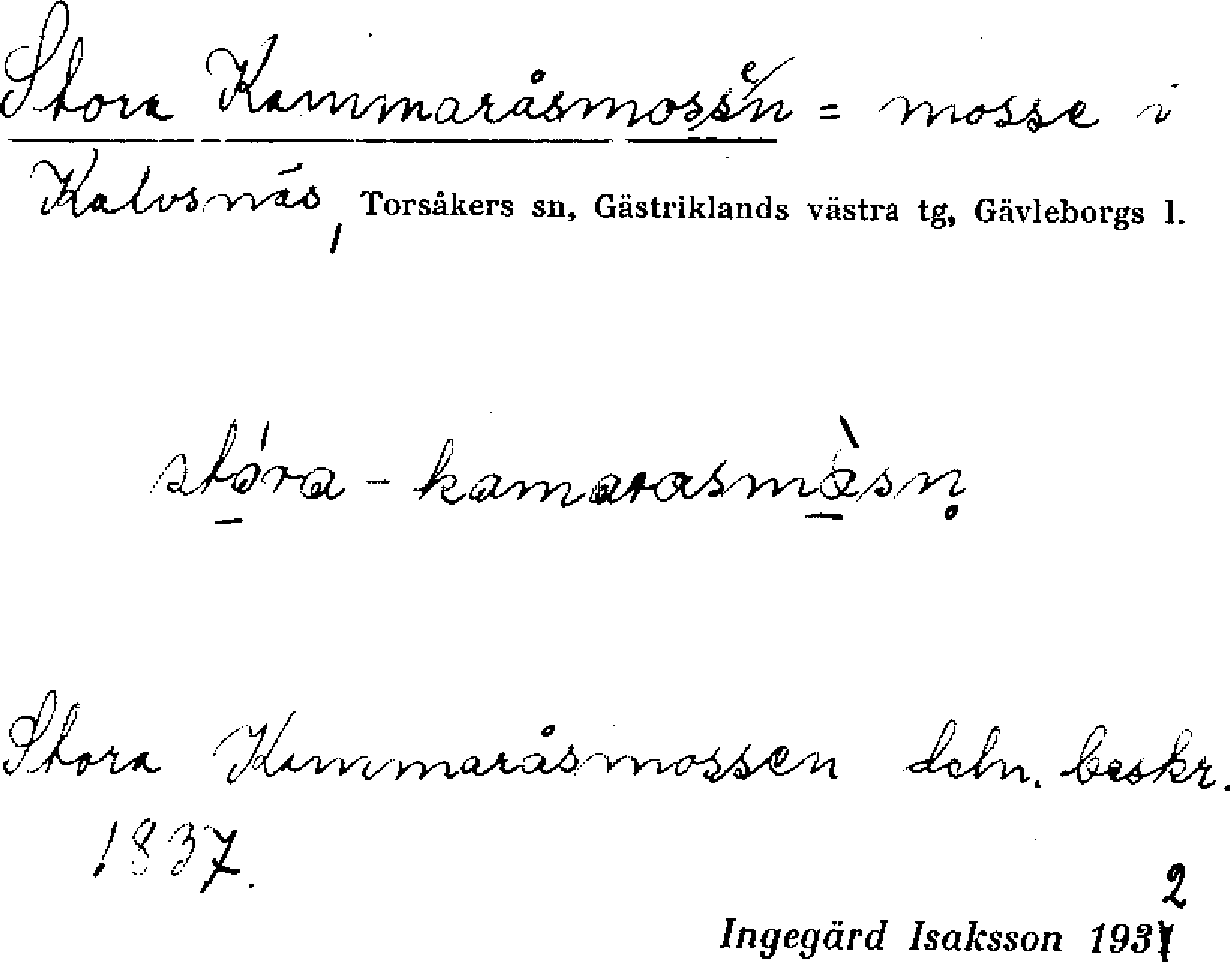 Stora Kammaråsmossen = mosse i
Kalvsnäs, Torsåkers sn, Gästriklands västra tg, Gävleborgs l.
stó̱ra - kamarasmɑ̱̀sn̥
Stora Kammaråsmossen deln. beskr.
1837.
Ingegärd Isaksson 1932